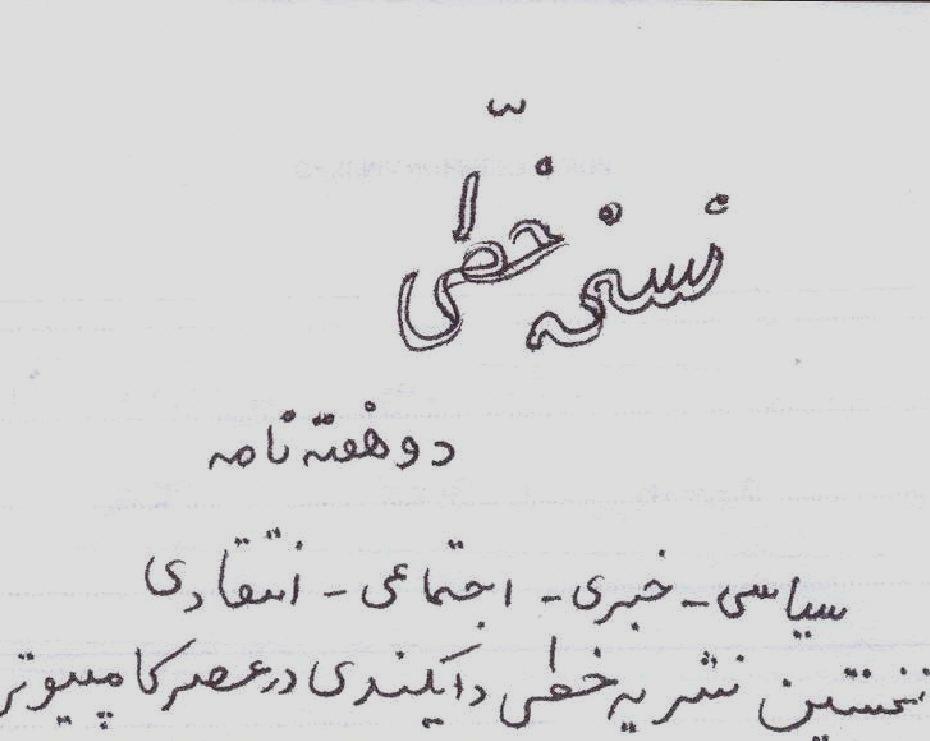 نسخه خطّی
دو هفته نامه
سیاسی - خبری - اجتماعی - انتقادی
نخستین نشریه خطی دایکندی در عصر کامپیوتر